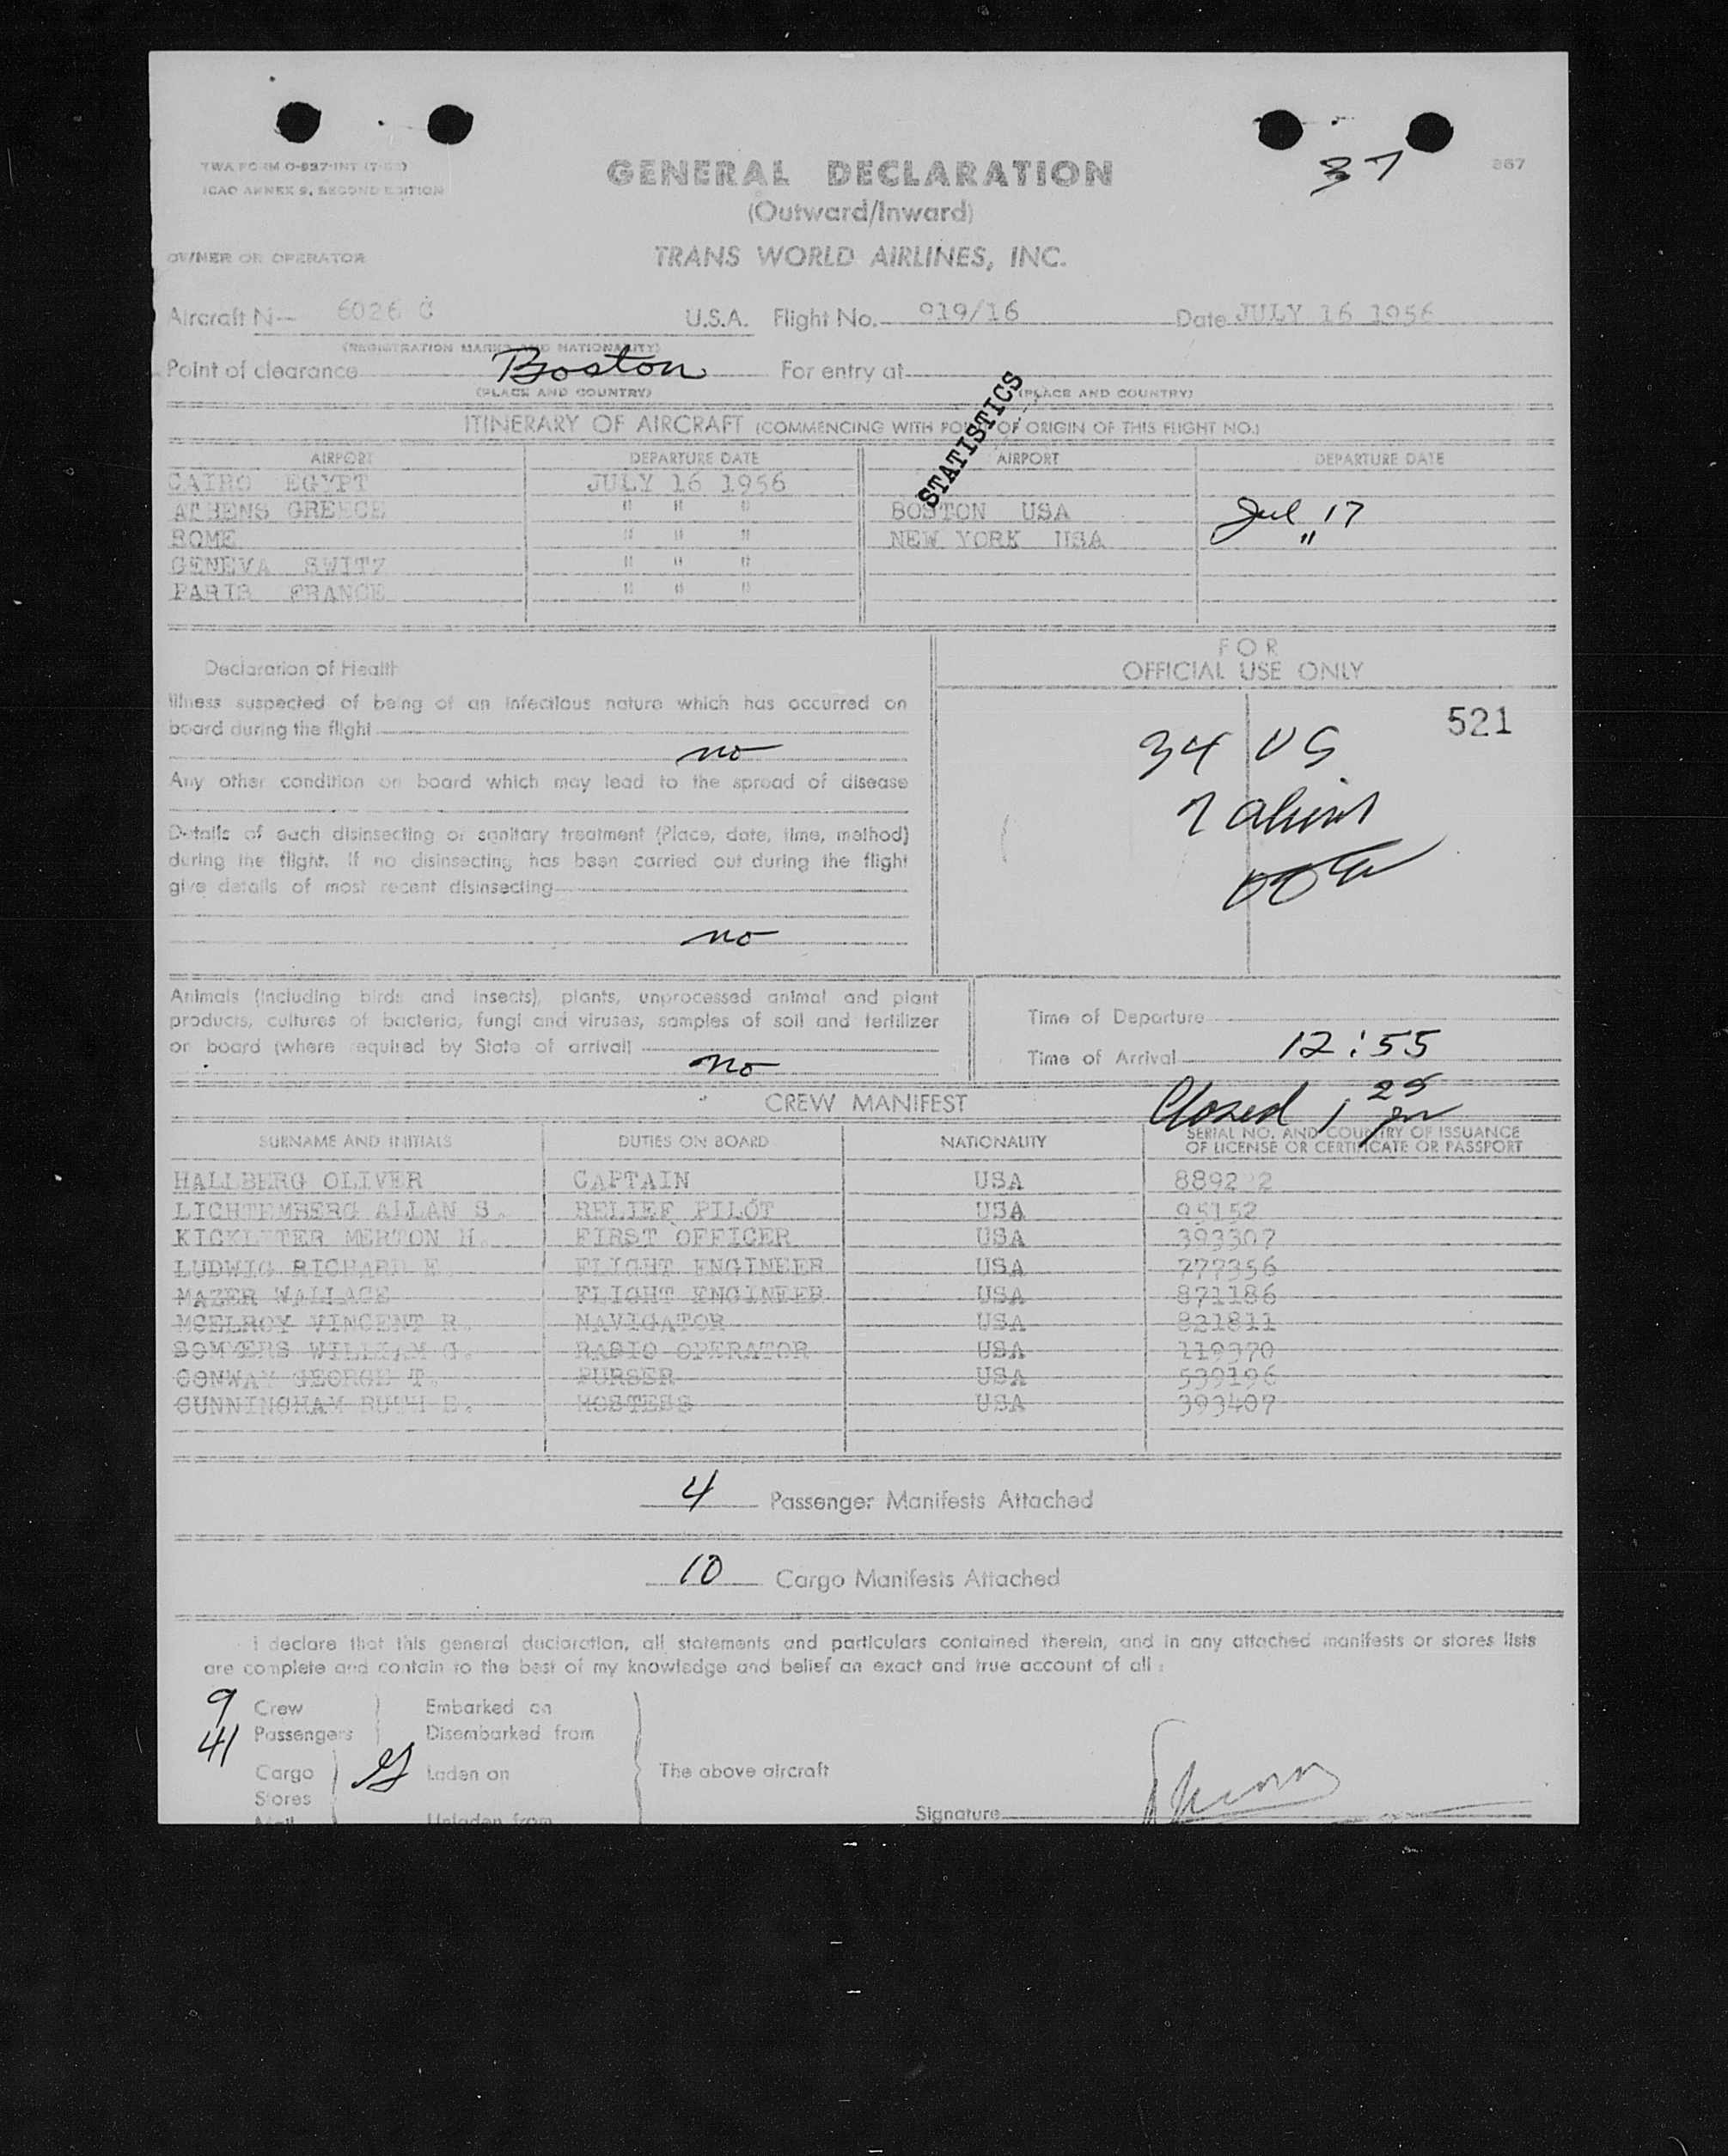 37 867
TWA FORM O-937-INT
ICAO ANNEX 9, SECOND EDITION
GENERAL DECLARATION
(Outward/Inward)
OWNER OR OPERATOR TRANS WORLD AIRLINES, INC.
Aircraft N-- 6026 C U.S.A. Flight No. 919/16 Date JULY 16 1956
(REGISTRATION MARKS AND NATIONALITY)
Point of clearance Boston For entry at
(PLACE AND COUNTRY) (PLACE AND COUNTRY)
STATISTICS
ITINERARY OF AIRCRAFT (COMMENCING WITH POINT OF ORIGIN OF THIS FLIGHT NO.)
AIRPORT DEPARTURE DATE AIRPORT DEPARTURE DATE
CAIRO EGYPT JULY 16 1956
ATHENS GREECE " " " BOSTON USA Jul 17
ROME " " " NEW YORK USA "
GENEVA SWITZ " " "
PARIS FRANCE " " "
Declaration of Health
Illness suspected of being of an infectious nature which has occurred on
board during the flight
no
Any other condition on board which may lead to the spread of disease
Details of each disinsecting or sanitary treatment (Place, date, time, method)
during the flight. If no disinsecting has been carried out during the flight
give details of most recent disinsecting
no
FOR
OFFICIAL USE ONLY
521
34 US
7 aliens
Animals (including birds and insects), plants, unprocessed animal and plant
products, cultures of bacteria, fungi and viruses, samples of soil and fertilizer
on board (where required by State of arrival)
no
Time of Departure
Time of Arrival 12:55
Closed 1 25 pm
CREW MANIFEST
SURNAME AND INITIALS DUTIES ON BOARD NATIONALITY SERIAL NO. AND COUNTRY OF ISSUANCE
OF LICENSE OR CERTIFICATE OR PASSPORT
HALLBERG OLIVER CAPTAIN USA
LICHTEMBERG ALLAN S. RELIEF PILOT USA 95152
KICKLITER MERTON H. FIRST OFFICER USA 393307
LUDWIG RICHARD E. FLIGHT ENGINEER USA 777356
MAZER WALLACE FLIGHT ENGINEER USA 871186
MCELROY VINCENT R. NAVIGATOR USA 821811
SOMMERS WILLIAM G. RADIO OPERATOR USA 119370
CONWAY GEORGE T. PURSER USA 539196
CUNNINGHAM RUTH E. HOSTESS USA 393407
4 Passenger Manifests Attached
10 Cargo Manifests Attached
I declare that this general declaration, all statements and particulars contained therein, and in any attached manifests or stores lists
are complete and contain to the best of my knowledge and belief an exact and true account of all:
9 Crew Embarked on
41 Passengers Disembarked from
Cargo Laden on The above aircraft
Stores
Mail Unladen from Signature